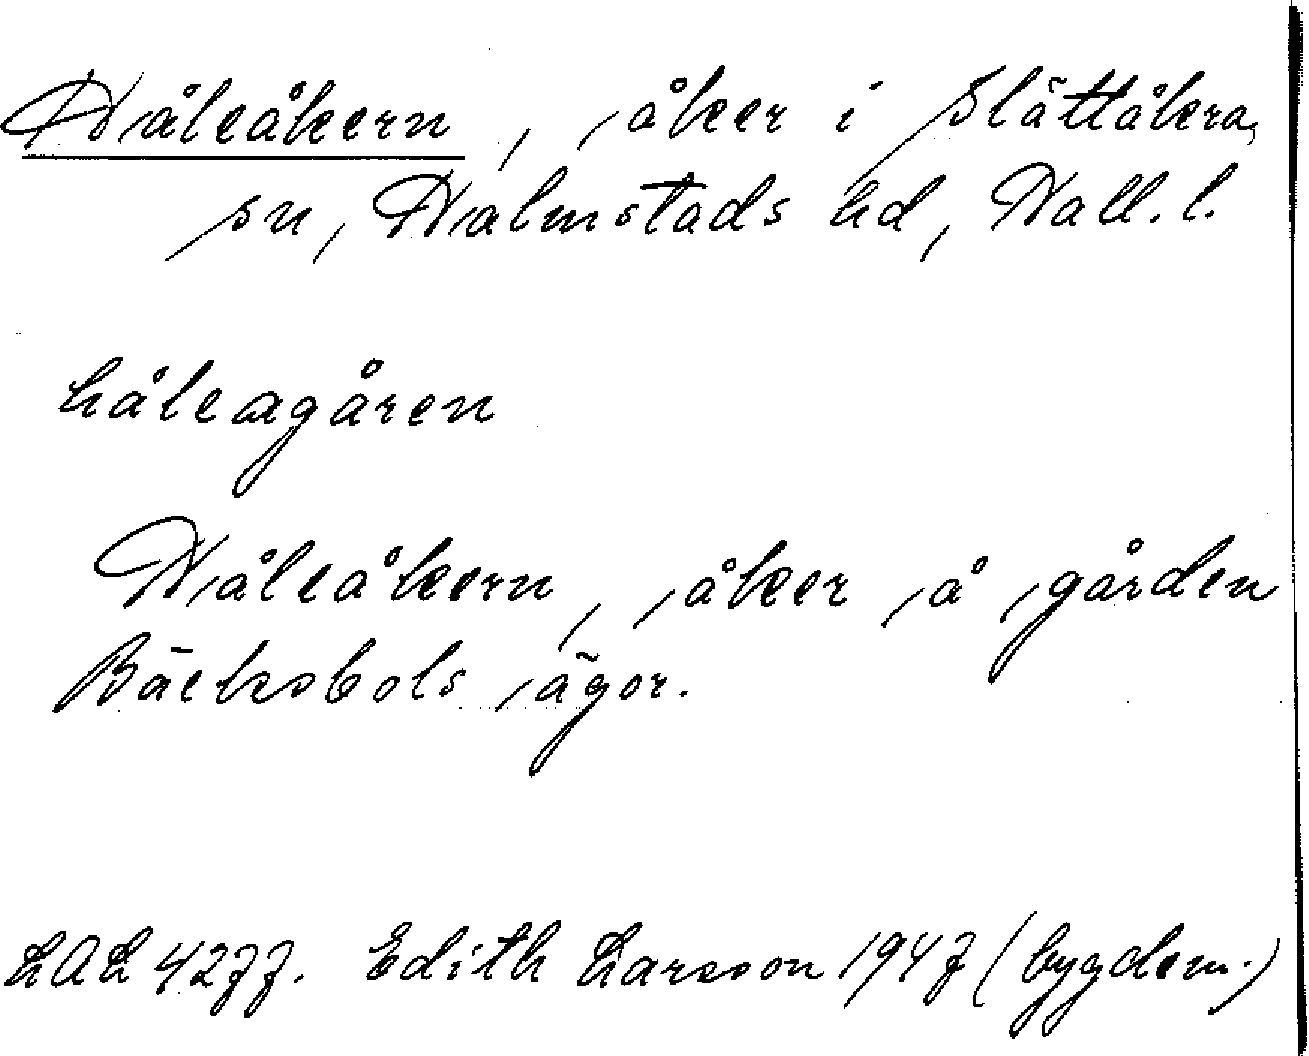 Håleåkern, åker i Slättåkra
sn, Halmstads hd, Hall. l.
håleagåren
Håleåkern, åker å gården
Bäcksbols ägor.
LAL 4277. Edith Larsson 1947 (bygdem.)